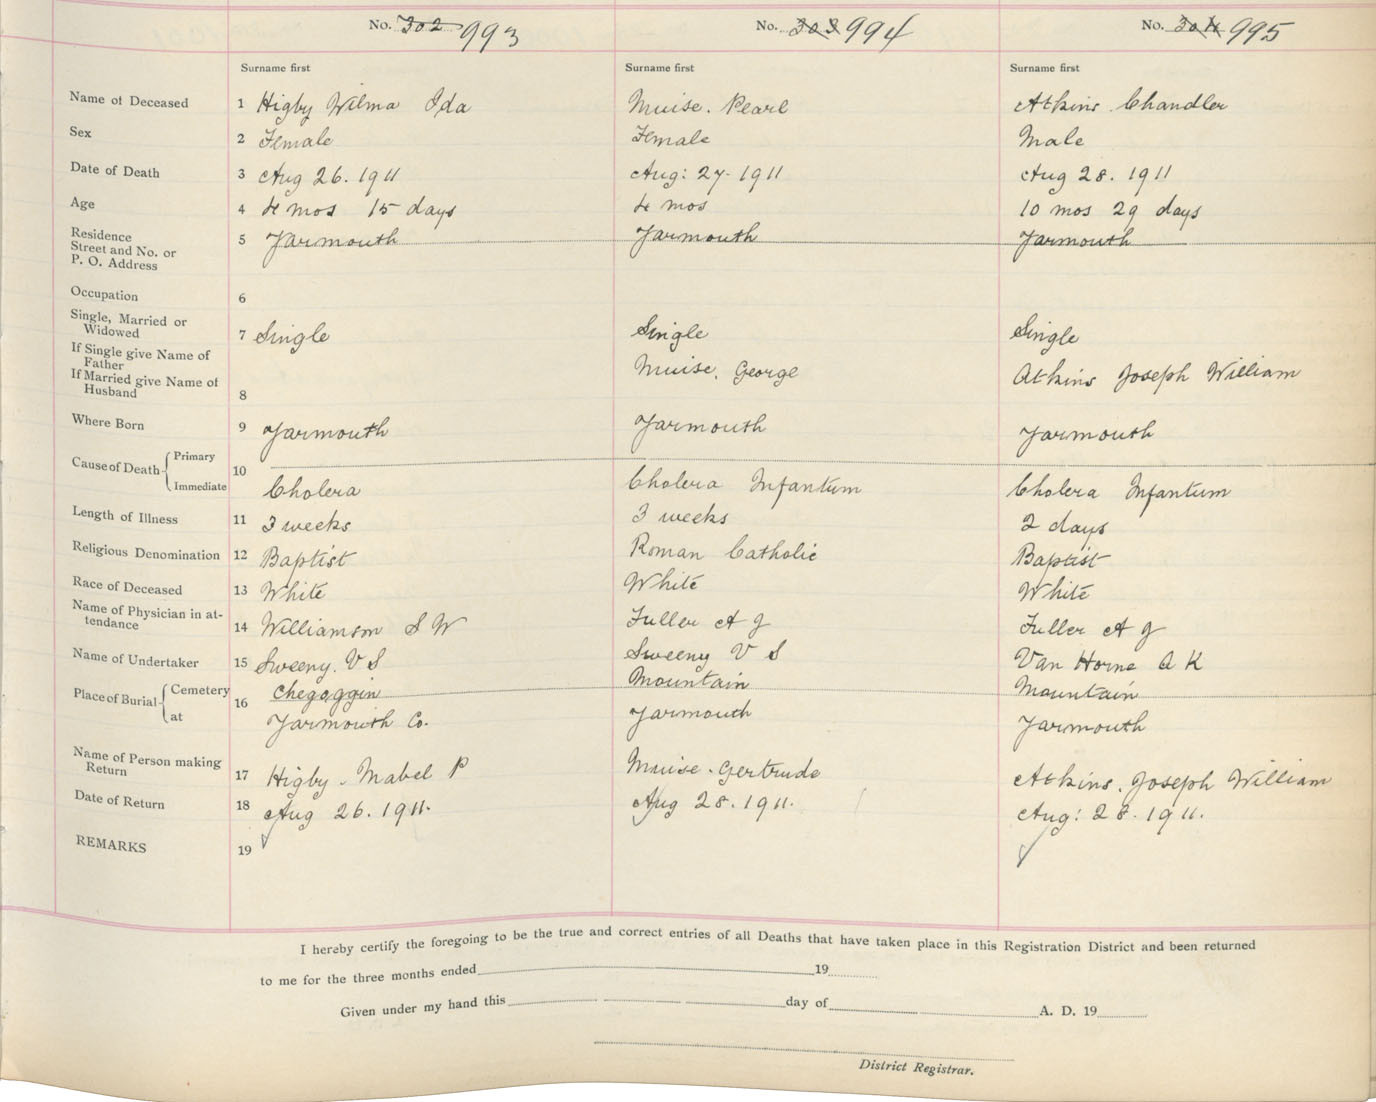 No. 302 993 No. 303 994 No. 304 995
Surname first Surname first Surname first
Name of Deceased 1 Higby Wilma Ida Muise. Pearl Atkins Chandler
Sex 2 Female Female Male
Date of Death 3 Aug 26. 1911 Aug: 27- 1911 Aug 28. 1911
Age 4 4 mos 15 days 4 mos 10 mos 29 days
Residence
Street and No. or 5 Yarmouth Yarmouth Yarmouth
P. O. Address
Occupation 6
Single, Married or
Widowed 7 Single Single Single
If Single give Name of
Father Muise. George Atkins Joseph William
If Married give Name of
Husband 8
Where Born 9 Yarmouth Yarmouth Yarmouth
Cause of Death Primary 10
Immediate Cholera Cholera Infantum Cholera Infantum
Length of Illness 11 3 weeks 3 weeks 2 days
Religious Denomination 12 Baptist Roman Catholic Baptist
Race of Deceased 13 White White White
Name of Physician in at-
tendance 14 Williamson S W Fuller A J Fuller A J
Name of Undertaker 15 Sweeny. V S Sweeny V S Van Horne A K
Place of Burial Cemetery 16 Chegoggin Mountain Mountain
at Yarmouth Co. Yarmouth Yarmouth
Name of Person making
Return 17 Higby. Mabel P Muise. Gertrude Atkins. Joseph William
Date of Return 18 Aug 26. 1911. Aug 28. 1911. Aug: 28. 1911.
REMARKS 19
I hereby certify the foregoing to be the true and correct entries of all Deaths that have taken place in this Registration District and been returned
to me for the three months ended 19
Given under my hand this day of A. D. 19
District Registrar.